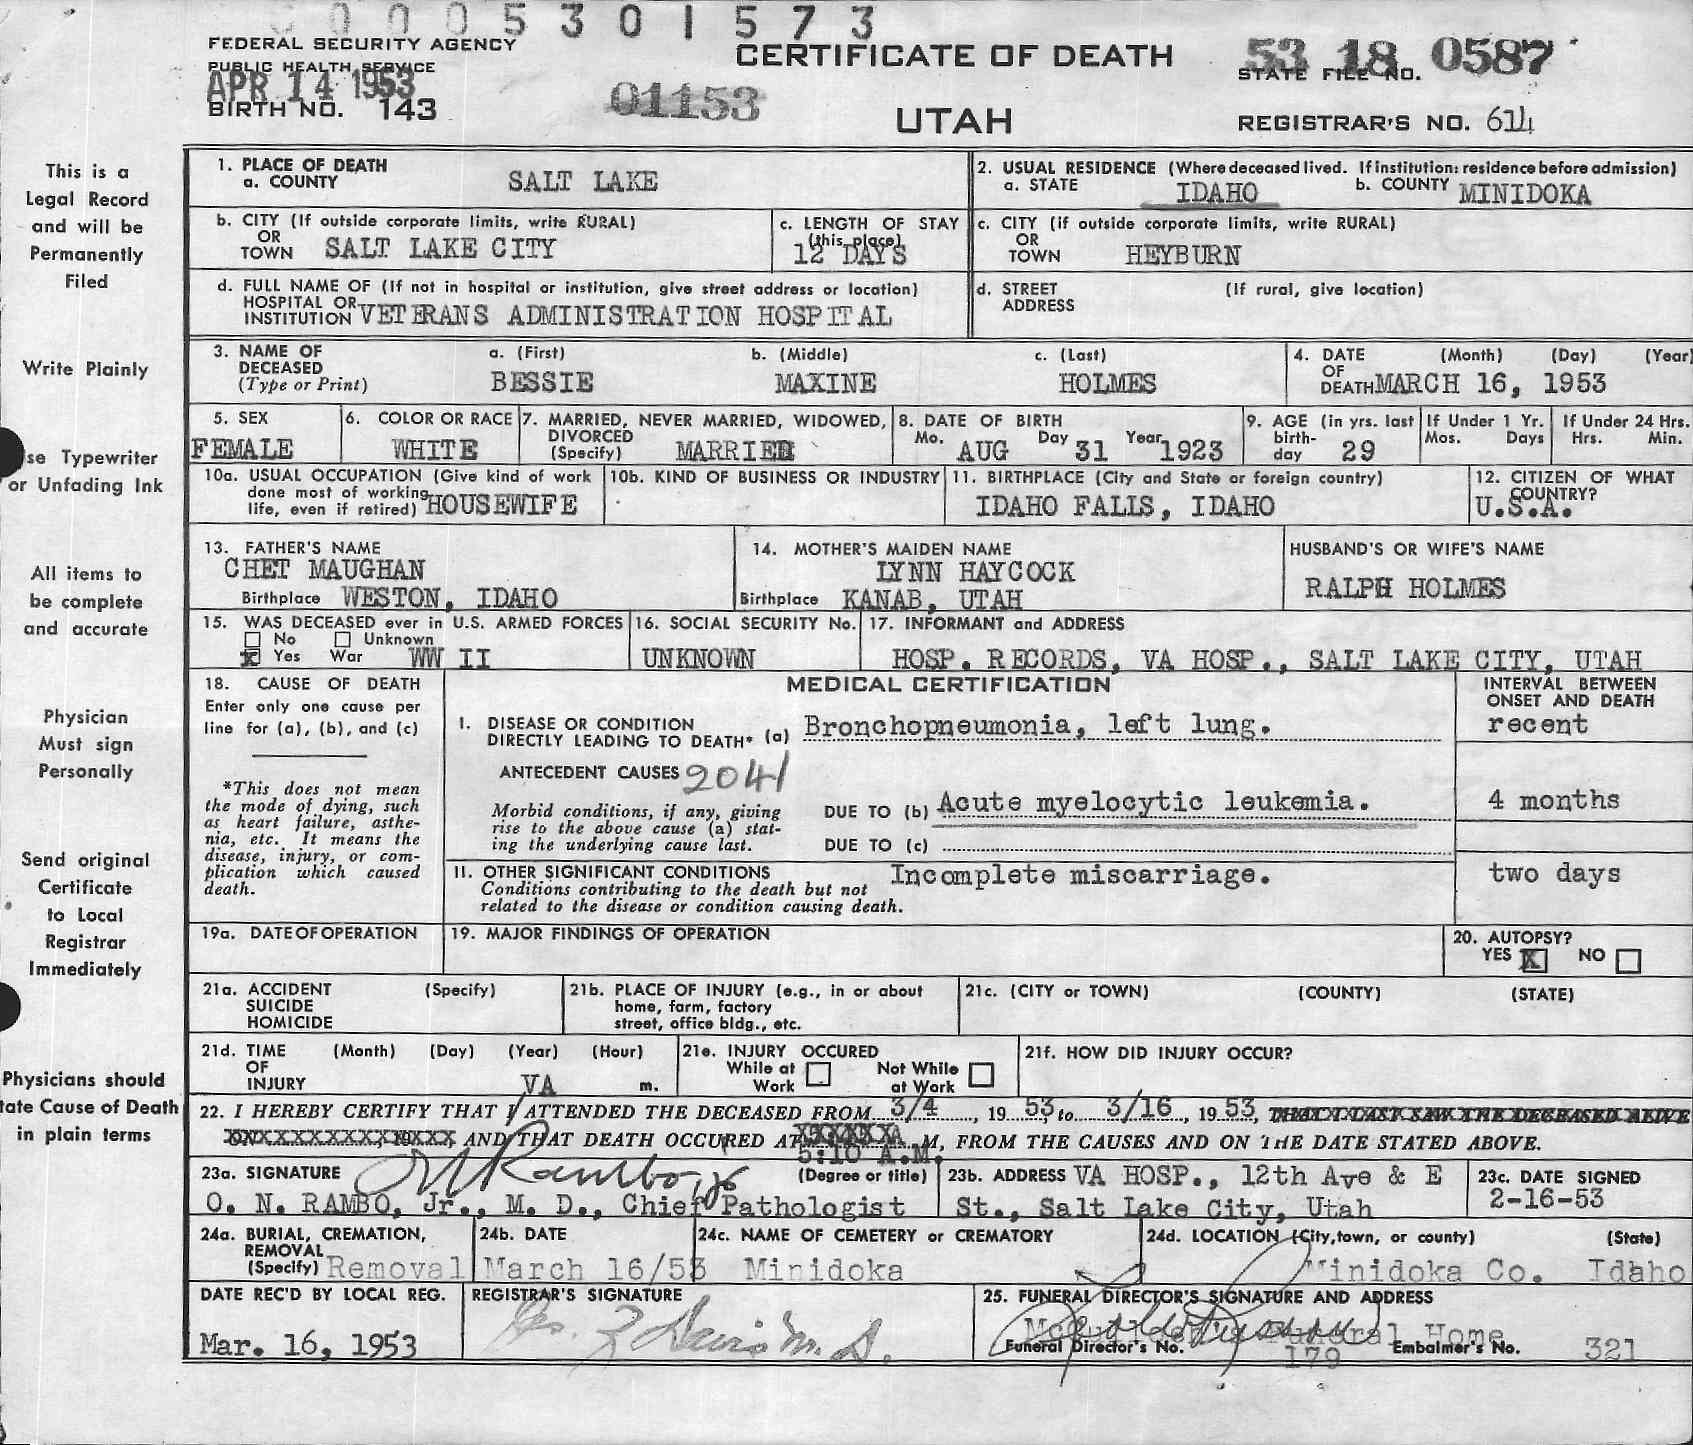 0005301573
FEDERAL SECURITY AGENCY
PUBLIC HEALTH SERVICE
APR 14 1953
BIRTH NO. 143
01153
CERTIFICATE OF DEATH
UTAH
53 18 0587
STATE FILE NO.
REGISTRAR'S NO. 614
This is a
Legal Record
and will be
Permanently
Filed
Write Plainly
se Typewriter
or Unfading Ink
All items to
be complete
and accurate
Physician
Must sign
Personally
Send original
Certificate
to Local
Registrar
Immediately
Physicians should
tate Cause of Death
in plain terms
1. PLACE OF DEATH
a. COUNTY SALT LAKE
2. USUAL RESIDENCE (Where deceased lived. If institution: residence before admission)
a. STATE IDAHO b. COUNTY MINIDOKA
b. CITY (If outside corporate limits, write RURAL)
OR
TOWN SALT LAKE CITY
c. LENGTH OF STAY
(this place)
12 DAYS
c. CITY (if outside corporate limits, write RURAL)
OR
TOWN HEYBURN
d. FULL NAME OF (If not in hospital or institution, give street address or location)
HOSPITAL OR
INSTITUTION VETERANS ADMINISTRATION HOSPITAL
d. STREET (If rural, give location)
ADDRESS
3. NAME OF DECEASED (Type or Print)
a. (First) b. (Middle) c. (Last)
BESSIE MAXINE HOLMES
4. DATE (Month) (Day) (Year)
OF
DEATH MARCH 16, 1953
5. SEX
FEMALE
6. COLOR OR RACE
WHITE
7. MARRIED, NEVER MARRIED, WIDOWED,
DIVORCED
(Specify) MARRIED
8. DATE OF BIRTH
Mo. AUG Day 31 Year 1923
9. AGE (in yrs. last
birth-
day 29
If Under 1 Yr.
Mos. Days
If Under 24 Hrs.
Hrs. Min.
10a. USUAL OCCUPATION (Give kind of work
done most of working
life, even if retired) HOUSEWIFE
10b. KIND OF BUSINESS OR INDUSTRY
11. BIRTHPLACE (City and State or foreign country)
IDAHO FALLS, IDAHO
12. CITIZEN OF WHAT
COUNTRY?
U.S.A.
13. FATHER'S NAME
CHET MAUGHAN
Birthplace WESTON, IDAHO
14. MOTHER'S MAIDEN NAME
LYNN HAYCOCK
Birthplace KANAB, UTAH
HUSBAND'S OR WIFE'S NAME
RALPH HOLMES
15. WAS DECEASED ever in U.S. ARMED FORCES
No Unknown
X Yes War WW II
16. SOCIAL SECURITY No.
UNKNOWN
17. INFORMANT and ADDRESS
HOSP. RECORDS, VA HOSP., SALT LAKE CITY, UTAH
18. CAUSE OF DEATH
Enter only one cause per
line for (a), (b), and (c)
*This does not mean
the mode of dying, such
as heart failure, asthe-
nia, etc. It means the
disease, injury, or com-
plication which caused
death.
MEDICAL CERTIFICATION
INTERVAL BETWEEN
ONSET AND DEATH
I. DISEASE OR CONDITION
DIRECTLY LEADING TO DEATH* (a) Bronchopneumonia, left lung. recent
ANTECEDENT CAUSES 2041
Morbid conditions, if any, giving
rise to the above cause (a) stat-
ing the underlying cause last.
DUE TO (b) Acute myelocytic leukemia. 4 months
DUE TO (c)
11. OTHER SIGNIFICANT CONDITIONS Incomplete miscarriage. two days
Conditions contributing to the death but not
related to the disease or condition causing death.
19a. DATE OF OPERATION
19. MAJOR FINDINGS OF OPERATION
20. AUTOPSY?
YES X NO
21a. ACCIDENT (Specify)
SUICIDE
HOMICIDE
21b. PLACE OF INJURY (e.g., in or about
home, farm, factory
street, office bldg., etc.
21c. (CITY or TOWN) (COUNTY) (STATE)
21d. TIME (Month) (Day) (Year) (Hour)
OF
INJURY m.
21e. INJURY OCCURED
While at Work Not While at Work
21f. HOW DID INJURY OCCUR?
VA
22. I HEREBY CERTIFY THAT I ATTENDED THE DECEASED FROM 3/4, 1953, to 3/16, 1953, THAT I LAST SAW THE DECEASED ALIVE
ONXXXXXXXXXX19XXX AND THAT DEATH OCCURED AT XXXXXXA .M, FROM THE CAUSES AND ON THE DATE STATED ABOVE.
5:10 A.M.
23a. SIGNATURE O N Rambo Jr (Degree or title)
O. N. RAMBO, Jr., M. D., Chief Pathologist
23b. ADDRESS VA HOSP., 12th Ave & E
St., Salt Lake City, Utah
23c. DATE SIGNED
2-16-53
24a. BURIAL, CREMATION,
REMOVAL
(Specify) Removal
24b. DATE
March 16/53
24c. NAME OF CEMETERY or CREMATORY
Minidoka
24d. LOCATION (City, town, or county) (State)
Minidoka Co. Idaho
DATE REC'D BY LOCAL REG.
Mar. 16, 1953
REGISTRAR'S SIGNATURE
Davis M.D.
25. FUNERAL DIRECTOR'S SIGNATURE AND ADDRESS
Funeral Home
Funeral Director's No. 179 Embalmer's No. 321